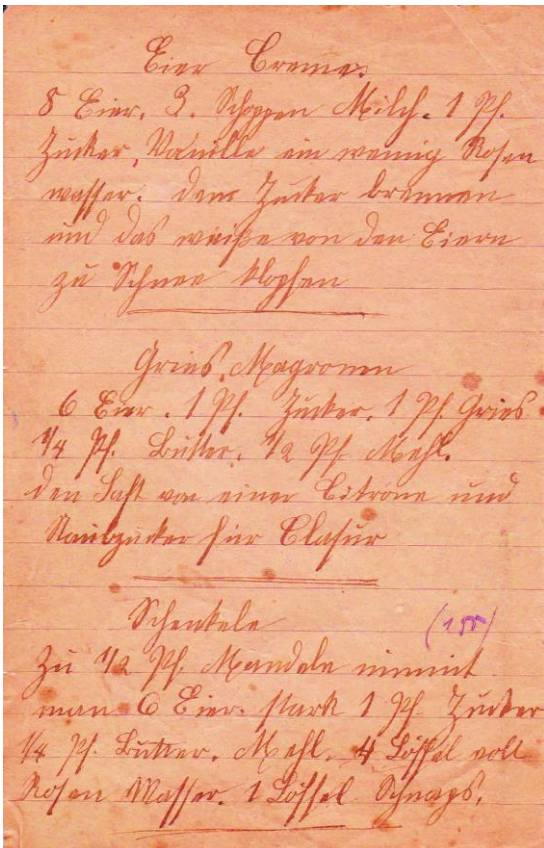 Eier Creme.
8 Eier. 3. Schoppen Milch. 1 Pf.
Zucker, Vanille ein wennig Rosen
wasser. dem Zucker brennen
und das weiße von den Eiern
zu Schnee klopfen
Gries, Magronen
6 Eier. 1 Pf. Zucker. 1 Pf. Gries.
1/4 Pf. Butter. 1/2 Pf. Mehl.
den Saft von einer Citrone und
Staubzucker für Clasur
Schenkele
Zu 1/2 Pf. Mandeln nimmt
man 6 Eier. stark 1 Pf. Zucker
1/4 Pf. Butter. Mehl. 4 Löffel voll
Rosen Wasser. 1 Löffel Schnaps.